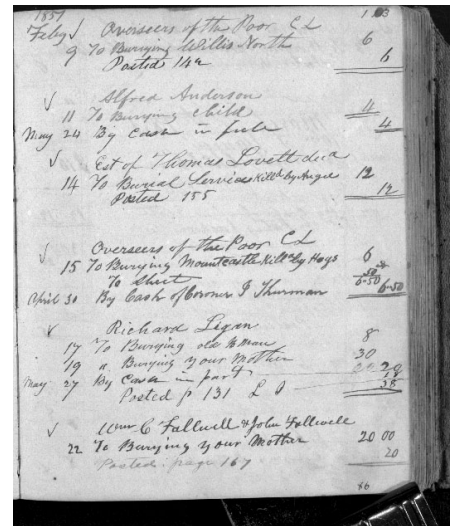 1857
103
Feby √ Overseers of the Poor CL
9 To Burying Willis North 6
Posted 142 6
√ Alfred Anderson
11 To Burying child 4
May 24 By Cash in full 4
√ Est of Thomas Lovett decd
14 To Burial Services Killd by 12
Posted 155 12
√ Overseers of the Poor CL
15 To Burying Mountcastle Killd by Hogs 6
To Sheet 50
6.50
April 30 By Cash of Coroner J Thurman 6.50
√ Richard Ligon
17 To Burying old Woman 8
19 " Burying your Mother 30
May 27 By Cash in part 20
Posted p 131 L 18
38
√ Wm C Fallwell & John Fallwell
22 To Burying your Mother 20 00
Posted page 167 20
86